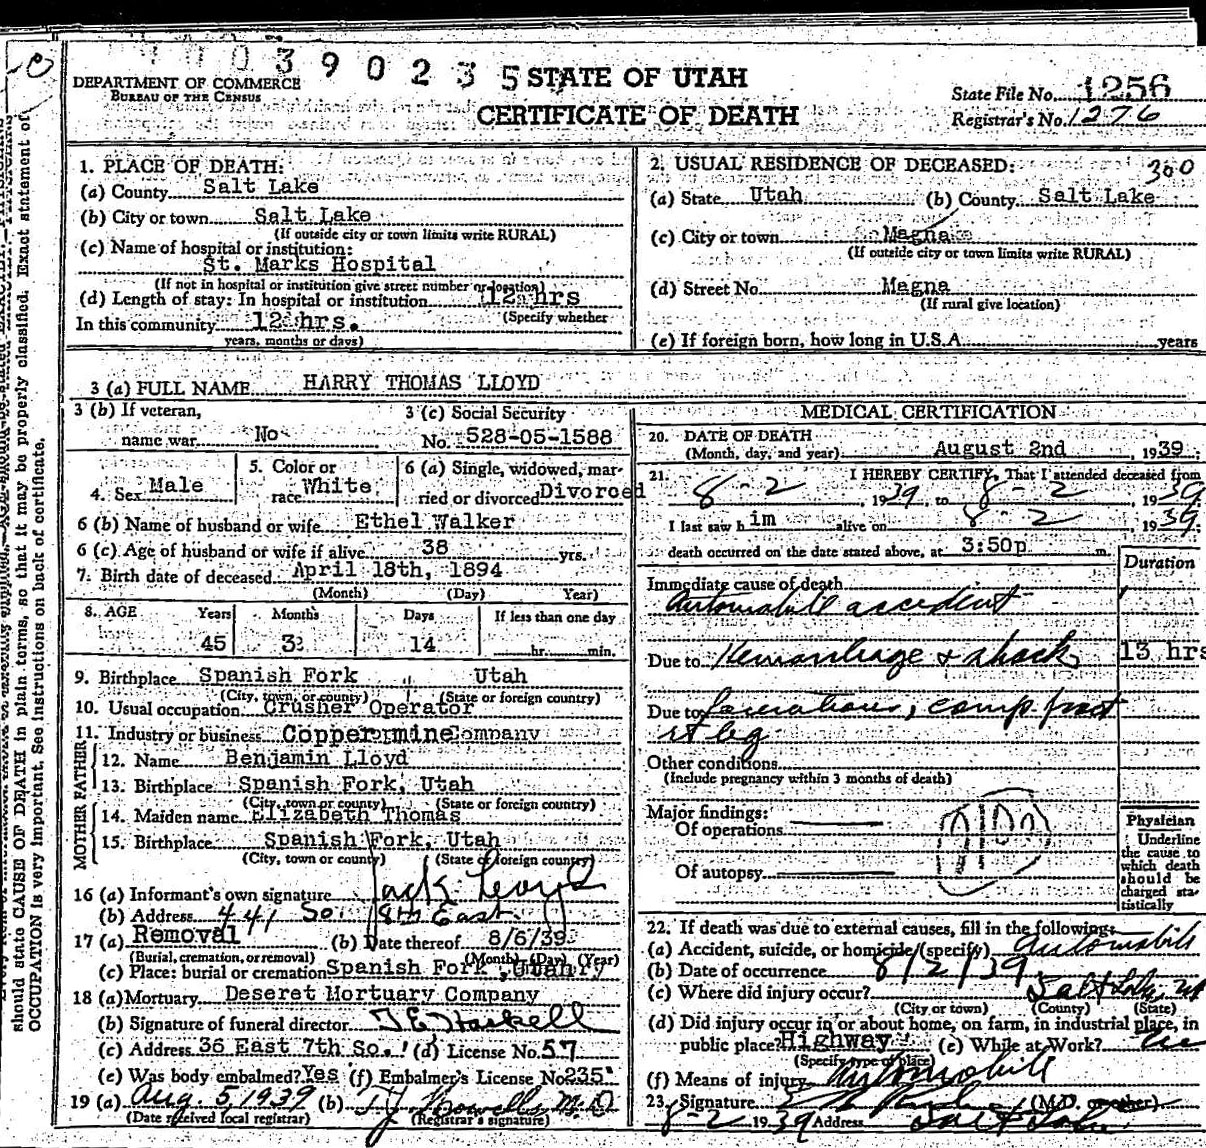 0 0 3 9 0 2 3 5
DEPARTMENT OF COMMERCE
BUREAU OF THE CENSUS
STATE OF UTAH
CERTIFICATE OF DEATH
State File No. 1256
Registrar's No. 1276
1. PLACE OF DEATH:
(a) County Salt Lake
(b) City or town Salt Lake
(If outside city or town limits write RURAL)
(c) Name of hospital or institution:
St. Marks Hospital
(If not in hospital or institution give street number or location)
(d) Length of stay: In hospital or institution 12 hrs
(Specify whether
In this community 12 hrs.
years, months or days)
2. USUAL RESIDENCE OF DECEASED: 300
(a) State Utah (b) County Salt Lake
(c) City or town Magna
(If outside city or town limits write RURAL)
(d) Street No. Magna
(If rural give location)
(e) If foreign born, how long in U.S.A. years
3 (a) FULL NAME HARRY THOMAS LLOYD
3 (b) If veteran,
name war No
3 (c) Social Security
No. 528-05-1588
4. Sex Male
5. Color or
race White
6 (a) Single, widowed, mar-
ried or divorced Divorced
6 (b) Name of husband or wife Ethel Walker
6 (c) Age of husband or wife if alive 38 yrs.
7. Birth date of deceased April 18th, 1894
(Month) (Day) Year)
8. AGE Years Months Days If less than one day
45 3 14 hr. min.
9. Birthplace Spanish Fork Utah
(City, town, or county) (State or foreign country)
10. Usual occupation Crusher Operator
11. Industry or business Copper mine Company
FATHER
12. Name Benjamin Lloyd
13. Birthplace Spanish Fork, Utah
(City, town or county) (State or foreign country)
MOTHER
14. Maiden name Elizabeth Thomas
15. Birthplace Spanish Fork, Utah
(City, town or county) (State of foreign country)
16 (a) Informant's own signature Jack Lloyd
(b) Address 441 So. 8th East
17 (a) Removal (b) Date thereof 8/6/39
(Burial, cremation, or removal) (Month) (Day) (Year)
(c) Place: burial or cremation Spanish Fork, Utah
18 (a) Mortuary Deseret Mortuary Company
(b) Signature of funeral director T E Haskell
(c) Address 36 East 7th So. (d) License No. 57
(e) Was body embalmed? Yes (f) Embalmer's License No 235
19 (a) Aug. 5, 1939 (b) M.D.
(Date received local registrar) (Registrar's signature)
MEDICAL CERTIFICATION
20. DATE OF DEATH
(Month, day, and year) August 2nd, 1939;
21. I HEREBY CERTIFY, That I attended deceased from
8-2, 1939, to 8-2, 1939
I last saw h im alive on 8-2, 1939;
death occurred on the date stated above, at 3:50p m.
Duration
Immediate cause of death
Automobile accident
Due to Hemorrhage & shock 13 hrs
Due to Lacerations, comp. fract
rt leg
Other conditions
(Include pregnancy within 3 months of death)
Major findings:
Of operations
Of autopsy
Physician
Underline
the cause to
which death
should be
charged sta-
tistically
22. If death was due to external causes, fill in the following:
(a) Accident, suicide, or homicide (specify) Automobile
(b) Date of occurrence 8/2/39
(c) Where did injury occur? Salt Lake, Ut
(City or town) (County) (State)
(d) Did injury occur in or about home, on farm, in industrial place, in
public place? Highway (e) While at Work?
(Specify type of place)
(f) Means of injury Automobile
23. Signature (M.D. or other)
8-2 1939 Address Salt Lake
should state CAUSE OF DEATH in plain terms, so that it may be properly classified. Exact statement of
OCCUPATION is very important. See instructions on back of certificate.